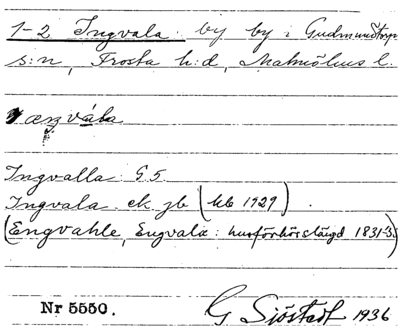 1-2 Ingvala: by by i Gudmundtorp
s:n, Frosta h:d, Malmöhus l.
æŋvála
Ingvalla G5
Ingvala ek jb (kb 1929).
(Engvahle, Engvala: husförhörslängd 1831-3)
Nr 5550.
G Sjöstedt 1936